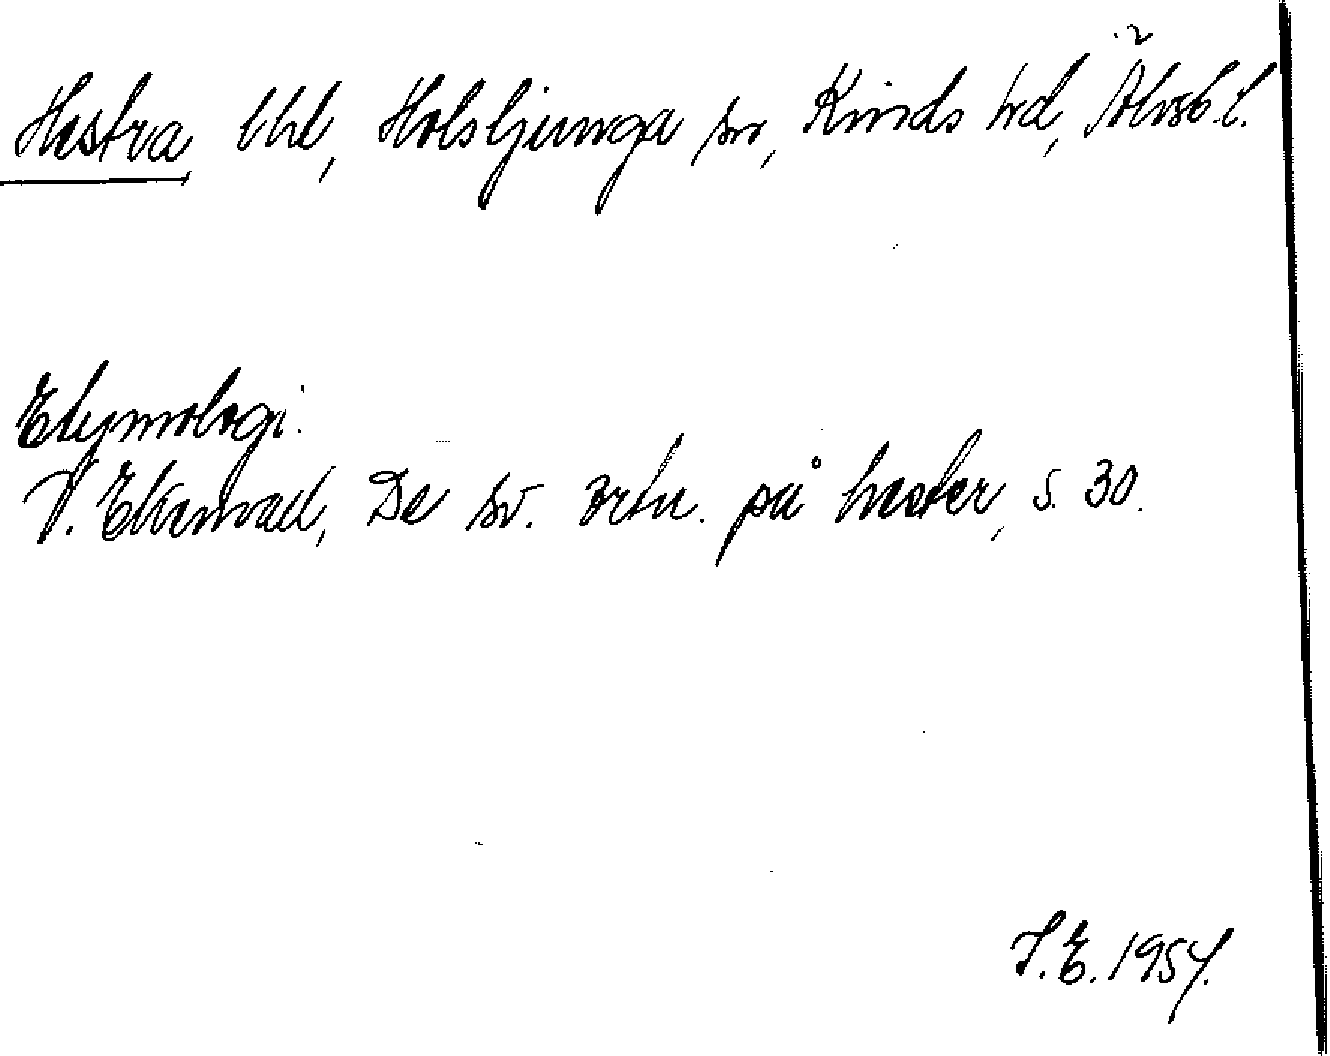 Hestra bbl, Holsljunga sn, Kinds hd, Älvsb. l.
Etymologi.
V. Ekenvall, De sv. ortn. på hester, s. 30.
1954.